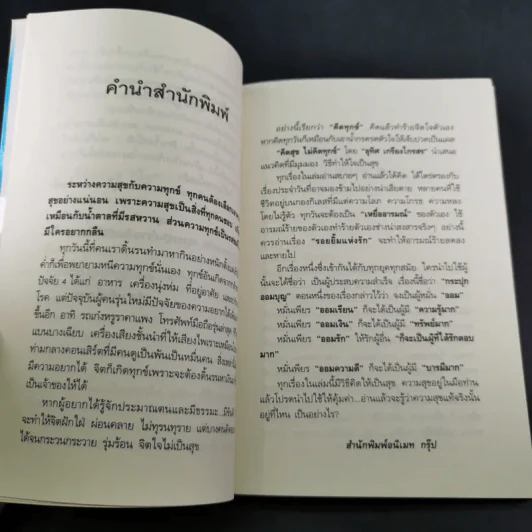 คำนำสำนักพิมพ์
ระหว่างความสุขกับความทุกข์ ทุกคนต้องเลือก
สุขอย่างแน่นอน เพราะความสุขเป็นสิ่งที่ทุกคนชอบ
เหมือนกับน้ำตาลที่มีรสหวาน ส่วนความทุกข์เป็น
มีใครอยากกลืน
ทุกวันนี้คนเราดิ้นรนทำมาหากินอย่างหนักตั้งแต่
ค่ำก็เพื่อพยายามหนีความทุกข์นั่นเอง ทุกข์อันเกิดจาก
ปัจจัย 4 ได้แก่ อาหาร เครื่องนุ่งห่ม ที่อยู่อาศัย และ
โรค แต่ปัจจุบันผู้คนรุ่นใหม่มีปัจจัยของความอยากได้
ขึ้นอีก อาทิ รถเก๋งหรูราคาแพง โทรศัพท์มือถือรุ่นล่าสุด
แบนบางเฉียบ เครื่องเสียงชั้นนำที่ให้เสียงไพเราะเหมือน
ท่ามกลางคอนเสิร์ตที่มีคนดูเป็นพันเป็นหมื่นคน สิ่งของ
ความอยากได้ มี จิตก็เกิดทุกข์เพราะจะต้องดิ้นรนหา
เป็นเจ้าของให้ได้
หากผู้อยากได้รู้จักประมาณตนและมีธรรมะ
จะทำให้จิตฝักใฝ่ ผ่อนคลาย ไม่ทุรนทุราย แต่บางคน
ได้จนกระวนกระวาย รุ่มร้อน จิตใจไม่เป็นสุข
อย่างนี้เรียกว่า "คิดทุกข์" คิดแล้วทำร้ายจิตใจตัวเอง
หากคิดทุกวันก็เหมือนกับเอาน้ำกรดรดตัวให้เจ็บปวดเป็นแผล
"คิดสุข ไม่คิดทุกข์" โดย อุทิศ เกรียงไกรสร นำเสนอ
แนวคิดที่มีมุมมอง วิธีทำให้ใจเป็นสุข
ทุกเรื่องในเล่มอ่านสบายๆ อ่านแล้วได้คิด ได้ไตร่ตรองกับ
เรื่องประจำวันที่อาจมองข้ามไปอย่างน่าเสียดาย หลายคนที่ใช้
ชีวิตอยู่บนกองกิเลสที่มีความโลภ ความโกรธ ความหลง
โดยไม่รู้ตัว ทุกวันจะต้องเป็น "เหยื่ออารมณ์" ของตัวเอง ใช้
อารมณ์ร้ายของตัวเองทำร้ายตัวเองช่างน่าสงสารจริงๆ อย่างนี้
ควรอ่านเรื่อง "รอยยิ้มแห่งรัก" จะทำให้อารมณ์ร้ายลดลง
และหายไป
อีกเรื่องหนึ่งซึ่งเข้ากันได้กับทุกยุคทุกสมัย ใครนำไปใช้ผู้
นั้นจะได้ชื่อว่า เป็นผู้ประสบความสำเร็จ เรื่องนี้ชื่อว่า "กระปุก
ออมบุญ" ตอนหนึ่งของเรื่องกล่าวไว้ว่า จงเป็นผู้หมั่น "ออม"
หมั่นเพียร "ออมเรียน" ก็จะได้เป็นผู้มี "ความรู้มาก"
หมั่นเพียร "ออมเงิน" ก็จะได้เป็นผู้มี "ทรัพย์มาก"
หมั่นเพียร "ออมรัก" ให้รักผู้อื่น "ก็จะเป็นผู้ที่ได้รักตอบ
มาก"
หมั่นเพียร "ออมความดี" ก็จะได้เป็นผู้มี "บารมีมาก"
ทุกเรื่องในเล่มนี้มีวิธีคิดให้เป็นสุข ความสุขอยู่ในมือท่าน
แล้วโปรดนำไปใช้ให้คุ้มค่า...อ่านแล้วจะรู้ว่าความสุขแท้จริงนั้น
อยู่ที่ไหน เป็นอย่างไร?
สำนักพิมพ์อนิเมท กรุ๊ป